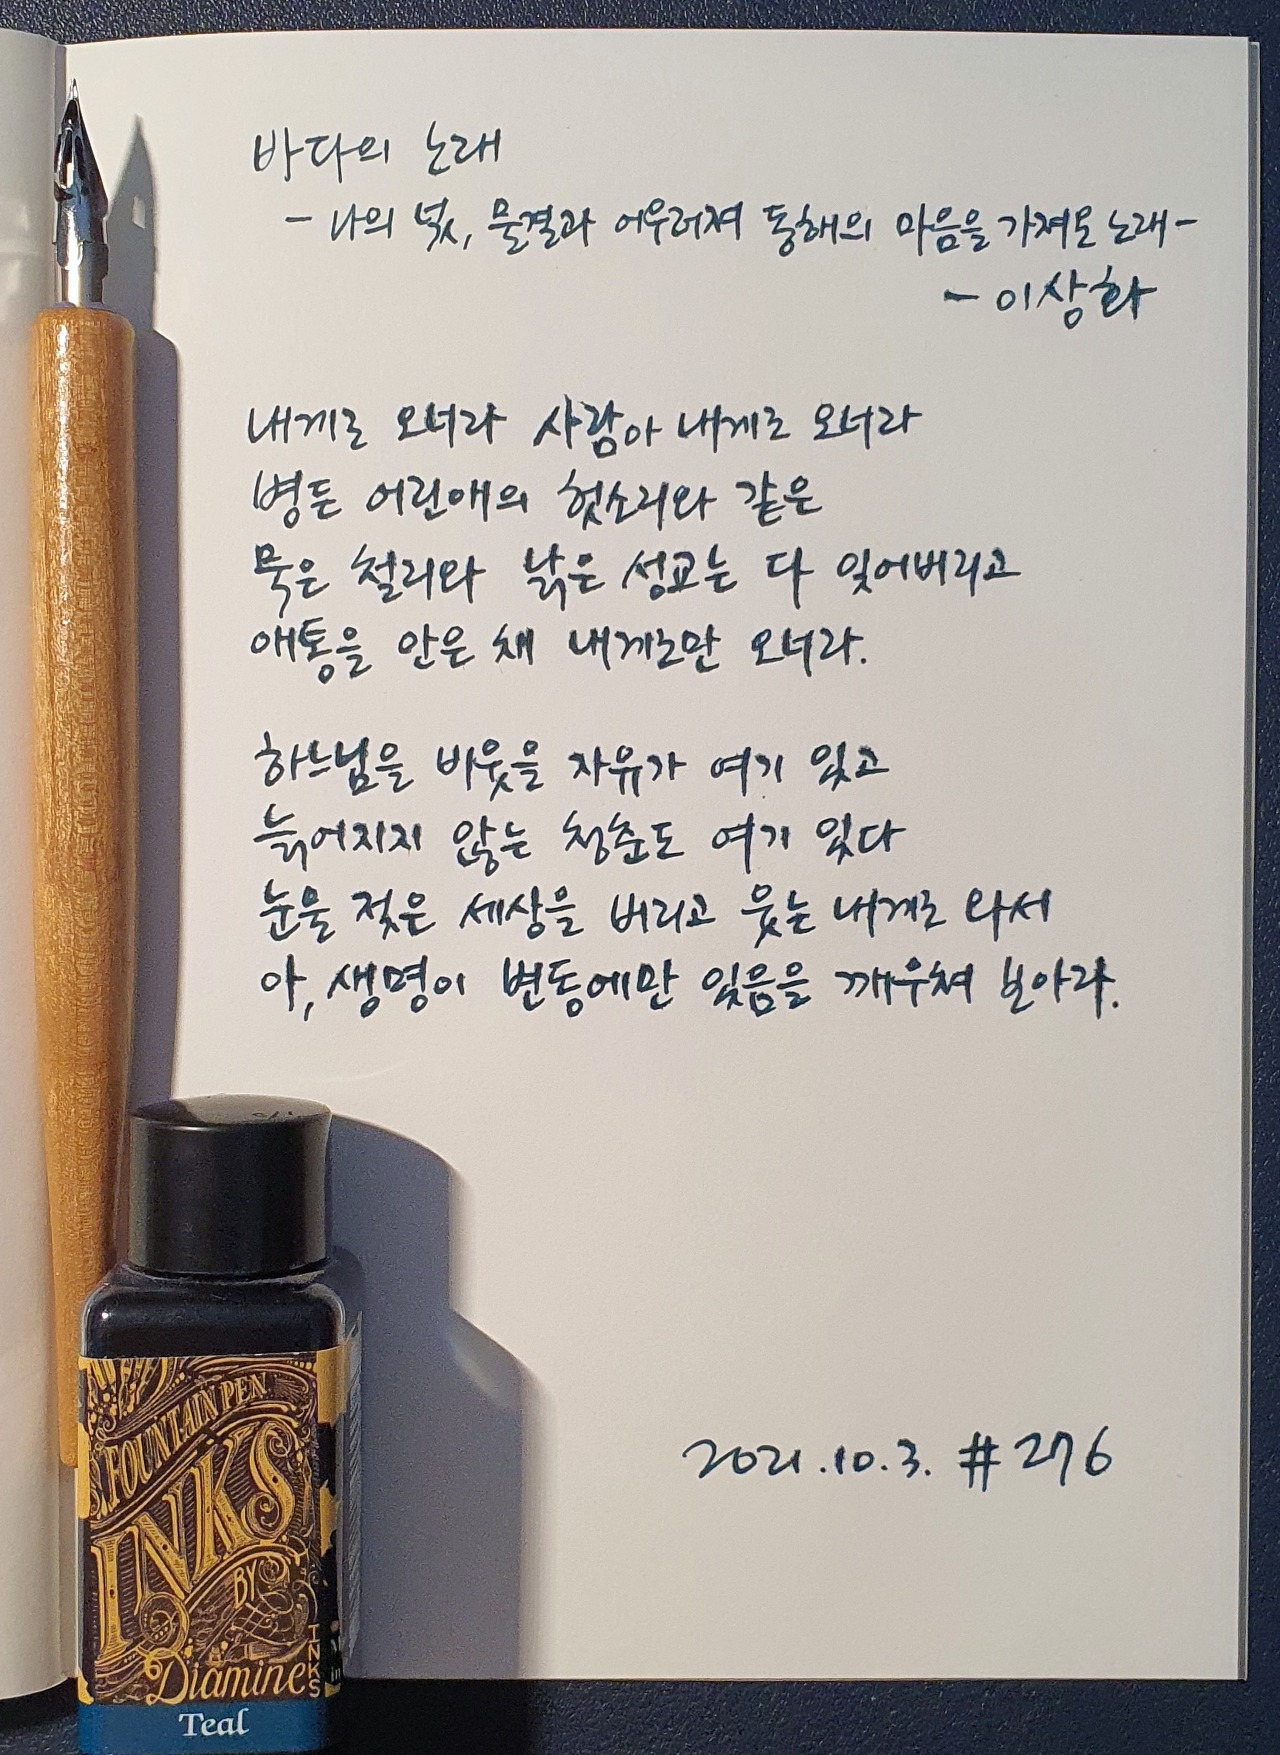 바다의 노래
- 나의 넋, 물결과 어우러져 동해의 마음을 가져온 노래 -
- 이상화
내게로 오너라 사람아 내게로 오너라
병든 어린애의 헛소리와 같은
묵은 철리와 낡은 성교는 다 잊어버리고
애통을 안은 채 내게로만 오너라.
하느님을 비웃을 자유가 여기 있고
늙어지지 않는 청춘도 여기 있다
눈물 젖은 세상을 버리고 웃는 내게로 와서
아, 생명이 변동에만 있음을 깨우쳐 보아라.
2021.10.3. #276
FOUNTAIN PEN
INKS
BY
INKS
Diamine
Teal